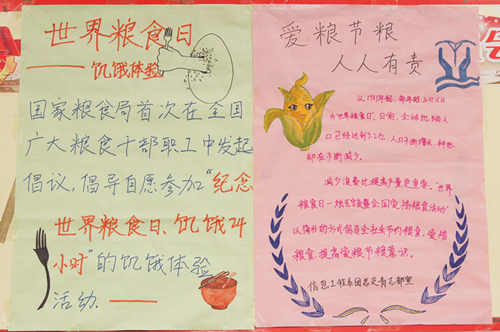 世界粮食日
—— 饥饿体验
国家粮食局首次在全国
广大粮食干部职工中发起
倡议,倡导自愿参加“纪念
世界粮食日、饥饿24
小时”的饥饿体验
活动.——
爱粮节粮
人人有责
从1981年起,每年的10月16日
为世界粮食日。目前,全球饥饿人
口已经达到9.2亿,人口不断增长,耕地
却在不断减少。
减少浪费比提高产量更重要。“世界
粮食日
以
的方式倡导全社会节约粮食、爱惜
粮食、提高爱粮节粮意识。
信息工程系团总支青志部宣